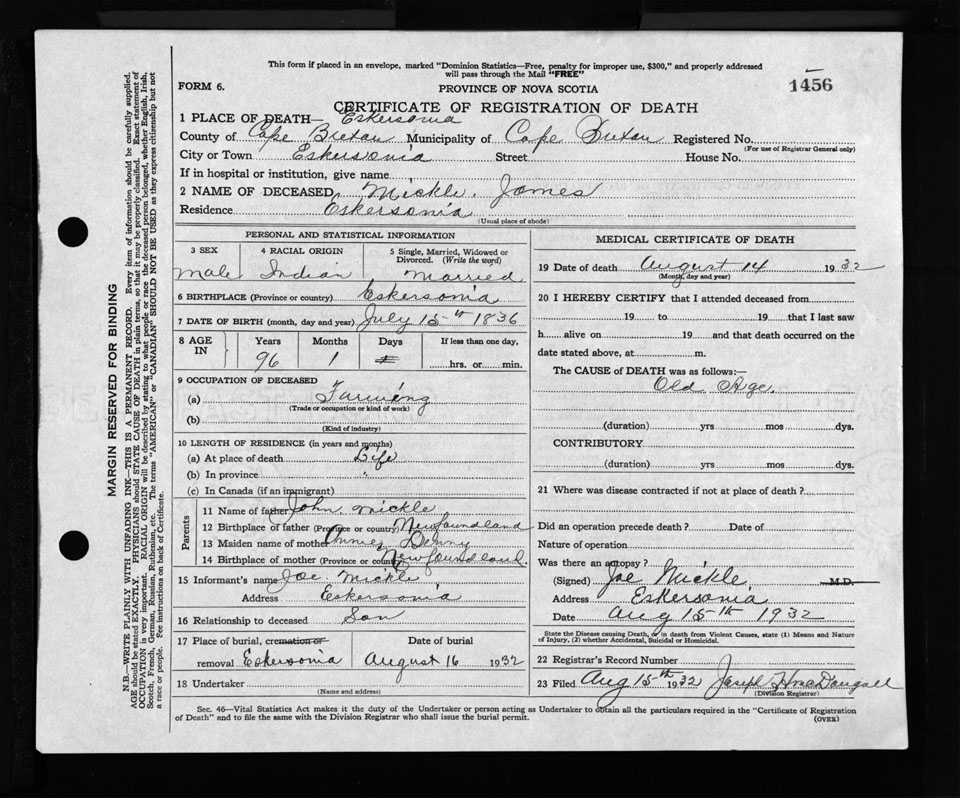 This form if placed in an envelope, marked "Dominion Statistics—Free, penalty for improper use, $300," and properly addressed
will pass through the Mail "FREE"
FORM 6.
PROVINCE OF NOVA SCOTIA
1456
CERTIFICATE OF REGISTRATION OF DEATH
1 PLACE OF DEATH— Eskersonia
County of Cape Breton Municipality of Cape Breton Registered No.
(For use of Registrar General only)
City or Town Eskersonia Street House No.
If in hospital or institution, give name
2 NAME OF DECEASED Mickle, James
Residence Eskersonia
(Usual place of abode)
PERSONAL AND STATISTICAL INFORMATION
3 SEX 4 RACIAL ORIGIN 5 Single, Married, Widowed or
Divorced. (Write the word)
Male Indian Married
6 BIRTHPLACE (Province or country) Eskersonia
7 DATE OF BIRTH (month, day and year) July 15th 1836
8 AGE IN Years Months Days If less than one day,
96 1 hrs. or min.
9 OCCUPATION OF DECEASED
(a) Farming
(Trade or occupation or kind of work)
(b)
(Kind of industry)
10 LENGTH OF RESIDENCE (in years and months)
(a) At place of death Life
(b) In province "
(c) In Canada (if an immigrant)
Parents
11 Name of father John Mickle
12 Birthplace of father (Province or country) Newfoundland
13 Maiden name of mother Annie Denny
14 Birthplace of mother (Province or country) Newfoundland
15 Informant's name Joe Mickle
Address Eskersonia
16 Relationship to deceased Son
17 Place of burial, cremation or Date of burial
removal Eskersonia August 16 1932
18 Undertaker
(Name and address)
MEDICAL CERTIFICATE OF DEATH
19 Date of death August 14 1932
(Month, day and year)
20 I HEREBY CERTIFY that I attended deceased from
19 to 19 that I last saw
h alive on 19 and that death occurred on the
date stated above, at m.
The CAUSE of DEATH was as follows:—
Old Age
(duration) yrs mos dys.
CONTRIBUTORY
(duration) yrs mos dys.
21 Where was disease contracted if not at place of death?
Did an operation precede death? Date of
Nature of operation
Was there an autopsy?
(Signed) Joe Mickle M.D.
Address Eskersonia
Date Aug 15th 1932
State the Disease causing Death, or in death from Violent Causes, state (1) Means and Nature
of Injury, (2) whether Accidental, Suicidal or Homicidal.
22 Registrar's Record Number
23 Filed Aug 15th 1932 Joseph H MacDougall
(Division Registrar)
Sec. 46—Vital Statistics Act makes it the duty of the Undertaker or person acting as Undertaker to obtain all the particulars required in the "Certificate of Registration
of Death" and to file the same with the Division Registrar who shall issue the burial permit.
(OVER)
MARGIN RESERVED FOR BINDING
N.B.—WRITE PLAINLY WITH UNFADING INK—THIS IS A PERMANENT RECORD. Every item of information should be carefully supplied.
AGE should be stated EXACTLY. PHYSICIANS should STATE CAUSE OF DEATH in plain terms, so that it may be properly classified. Exact statement of
OCCUPATION is very important. RACIAL ORIGIN will be described by stating to what people or race the deceased person belonged, whether English, Irish,
Scotch, French, German, Russian, Ruthenian, etc. The terms "AMERICAN" or "CANADIAN" SHOULD NOT BE USED as they express citizenship but not
a race or people. Fee instructions on back of Certificate.